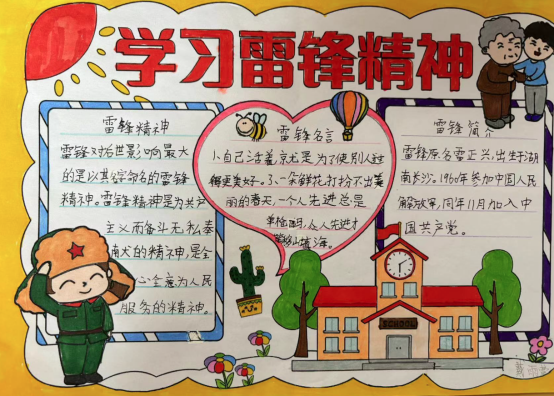 学习雷锋精神
雷锋精神
雷锋对后世影响最大
的是以其名命名的雷锋
精神。雷锋精神是为共产
主义而奋斗无私奉
献的精神,是全
心全意为人民
服务的精神。
雷锋名言
1、自己活着,就是为了使别人过
得更美好。3、一朵鲜花打扮不出美
丽的春天,一个人先进总是
单枪匹马,众人先进才
雷锋简介
雷锋原名雷正兴,出生于湖
南长沙。1960年参加中国人民
解放军,同年11月加入中
国共产党。
SCHOOL